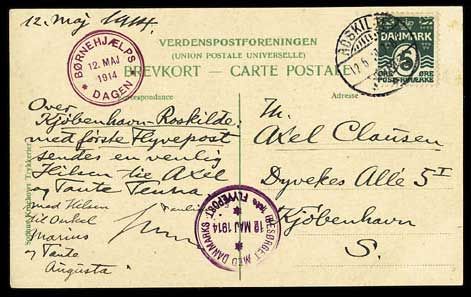 12. Maj 1914.
BØRNEHJÆLPS
12. MAJ
1914
DAGEN
VERDENSPOSTFORENINGEN
(UNION POSTALE UNIVERSELLE)
BREVKORT – CARTE POSTALE
ROSKIL
DANMARK
5
ØRE ØRE
POSTFRIMÆRKE
Correspondance
Adresse
Over
Kjøbenhavn-Roskilde
med første Flyvepost
sendes en venlig
Hilsen til Axel
og Tante
med Hilsen
til Onkel
Marius
og Tante
Augusta
BESØRGET MED DANMARKS
12 MAJ 1914
1ste FLYVEPOST
Til
Axel Clausen
Dyvekes Alle 5 I
Kjøbenhavn
S.